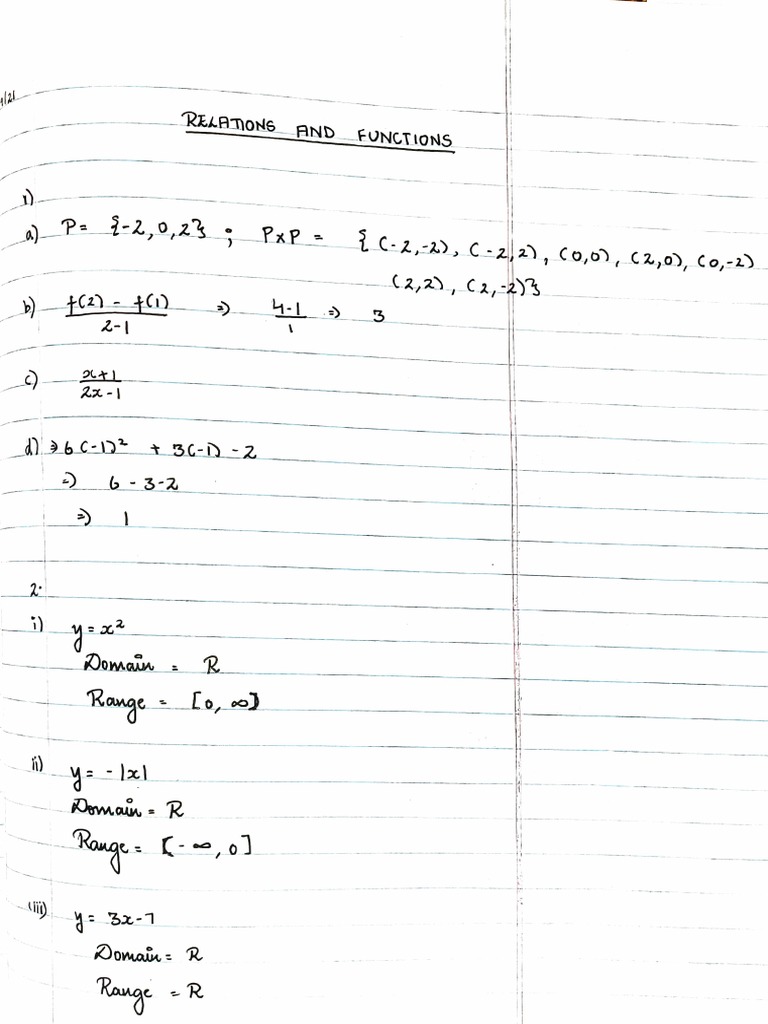 1/21
RELATIONS AND FUNCTIONS
1)
a) P = {-2, 0, 2} ; P×P = { (-2,-2), (-2,2), (0,0), (2,0), (0,-2)
(2,2), (2,-2)}
b) f(2) - f(1) / 2-1 ⇒ 4-1 / 1 ⇒ 3
c) x+1 / 2x-1
d) ⇒ 6(-1)² + 3(-1) - 2
⇒ 6 - 3 - 2
⇒ 1
2.
i) y = x²
Domain = R
Range = [0, ∞)
ii) y = -|x|
Domain = R
Range = [-∞, 0]
(iii) y = 3x-7
Domain = R
Range = R